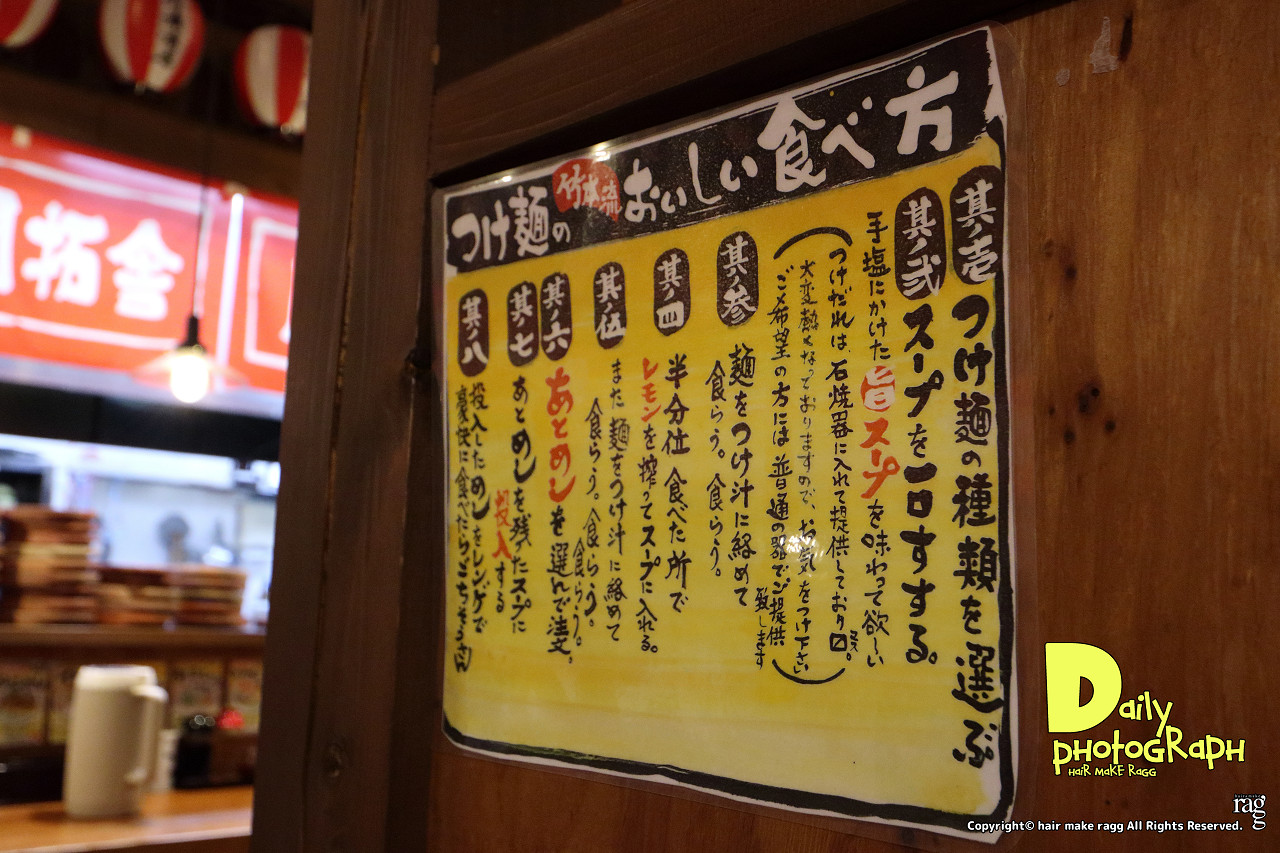 つけ麺の 竹本流 おいしい食べ方
其ノ壱 つけ麺の種類を選ぶ
其ノ弐 スープを一口すする。
手塩にかけた旨スープを味わって欲しい
(つけだれは、石焼器に入れて提供しており〼。
大変熱くなっておりますので、お気をつけ下さい
ご希望の方には普通の器でご提供
致します)
其ノ参 麺をつけ汁に絡めて
食らう。食らう。
其ノ四 半分位食べた所で
レモンを搾ってスープに入れる。
其ノ伍 また麺をつけ汁に絡めて
食らう。食らう。
食らう。
其ノ六 あとめしを選んで注文。
其ノ七 あとめしを残ったスープに
投入する
其ノ八 投入しためしをレンゲで
豪快に食べたらごちそうさん
拓舎
Daily
photograph
HaiR MaKE RaGG
hairmake
ragg
Copyright© hair make ragg All Rights Reserved.